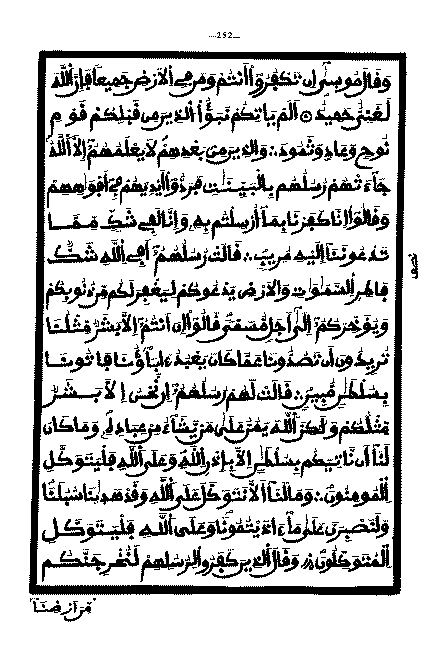 —252—
وَقَالَ مُوسِىٰٓ إِن تَكْفُرُوٓاْ أَنتُمْ وَمَن فِے اِ۬لَارْضِ جَمِيعاً فَإِنَّ اَ۬للَّهَ
لَغَنِىٌّ حَمِيدٌ ۞ اَلَمْ يَاتِكُمْ نَبَؤُاْ اُ۬لذِينَ مِن قَبْلِكُمْ قَوْمِ
نُوحٍ وَعَادٍ وَثَمُودَ ∴ وَالذِينَ مِنۢ بَعْدِهِمْ لَا يَعْلَمُهُمُۥٓ إِلَّا اَ۬للَّهُ
جَآءَتْهُمْ رُسُلُهُم بِالْبَيِّنَٰتِ فَرَدُّوٓاْ أَيْدِيَهُمْ فِےٓ أَفْوَٰهِهِمْ
وَقَالُوٓاْ إِنَّا كَفَرْنَا بِمَآ أُرْسِلْتُم بِهِۦ وَإِنَّا لَفِے شَكٍّ مِّمَّا
تَدْعُونَنَآ إِلَيْهِ مُرِيبٍ ∴ قَالَتْ رُسُلُهُمُۥٓ أَفِے اِ۬للَّهِ شَكٌّ
فَاطِرِ اِ۬لسَّمَٰوَٰتِ وَالَارْضِ يَدْعُوكُمْ لِيَغْفِرَ لَكُم مِّن ذُنُوبِكُمْ
وَيُؤَخِّرَكُمُۥٓ إِلَىٰٓ أَجَلٍ مُّسَمّىً قَالُوٓاْ إِنَ اَنتُمُۥٓ إِلَّا بَشَرٌ مِّثْلُنَا
تُرِيدُونَ أَن تَصُدُّونَا عَمَّا كَانَ يَعْبُدُ ءَابَآؤُنَا فَاتُونَا
بِسُلْطَٰنٍ مُّبِينٍ ∴ قَالَتْ لَهُمْ رُسُلُهُمُۥٓ إِن نَّحْنُ إِلَّا بَشَرٌ
مِّثْلُكُمْ وَلَٰكِنَّ اَ۬للَّهَ يَمُنُّ عَلَىٰ مَنْ يَّشَآءُ مِنْ عِبَادِهِۦ وَمَا كَانَ
لَنَآ أَن نَّاتِيَكُم بِسُلْطَٰنٍ اِلَّا بِإِذْنِ اِ۬للَّهِ وَعَلَى اَ۬للَّهِ فَلْيَتَوَكَّلِ
اِ۬لْمُومِنُونَ ∴ وَمَا لَنَآ أَلَّا نَتَوَكَّلَ عَلَى اَ۬للَّهِ وَقَدْ هَد۪يٰنَا سُبُلَنَا
وَلَنَصْبِرَنَّ عَلَىٰ مَآ ءَاذَيْتُمُونَا وَعَلَى اَ۬للَّهِ فَلْيَتَوَكَّلِ
اِ۬لْمُتَوَكِّلُونَ ∴ وَقَالَ اَ۬لذِينَ كَفَرُواْ لِرُسُلِهِمْ لَنُخْرِجَنَّكُم
نصف
مِّنَ اَرْضِنَآ